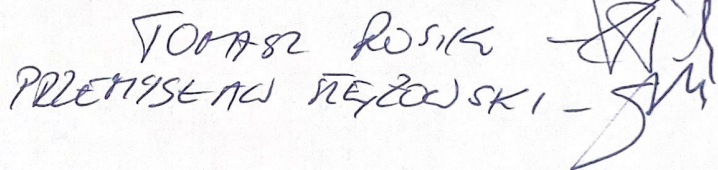 TOMASZ ROSIK -
PRZEMYSŁAW STĘŻOWSKI -